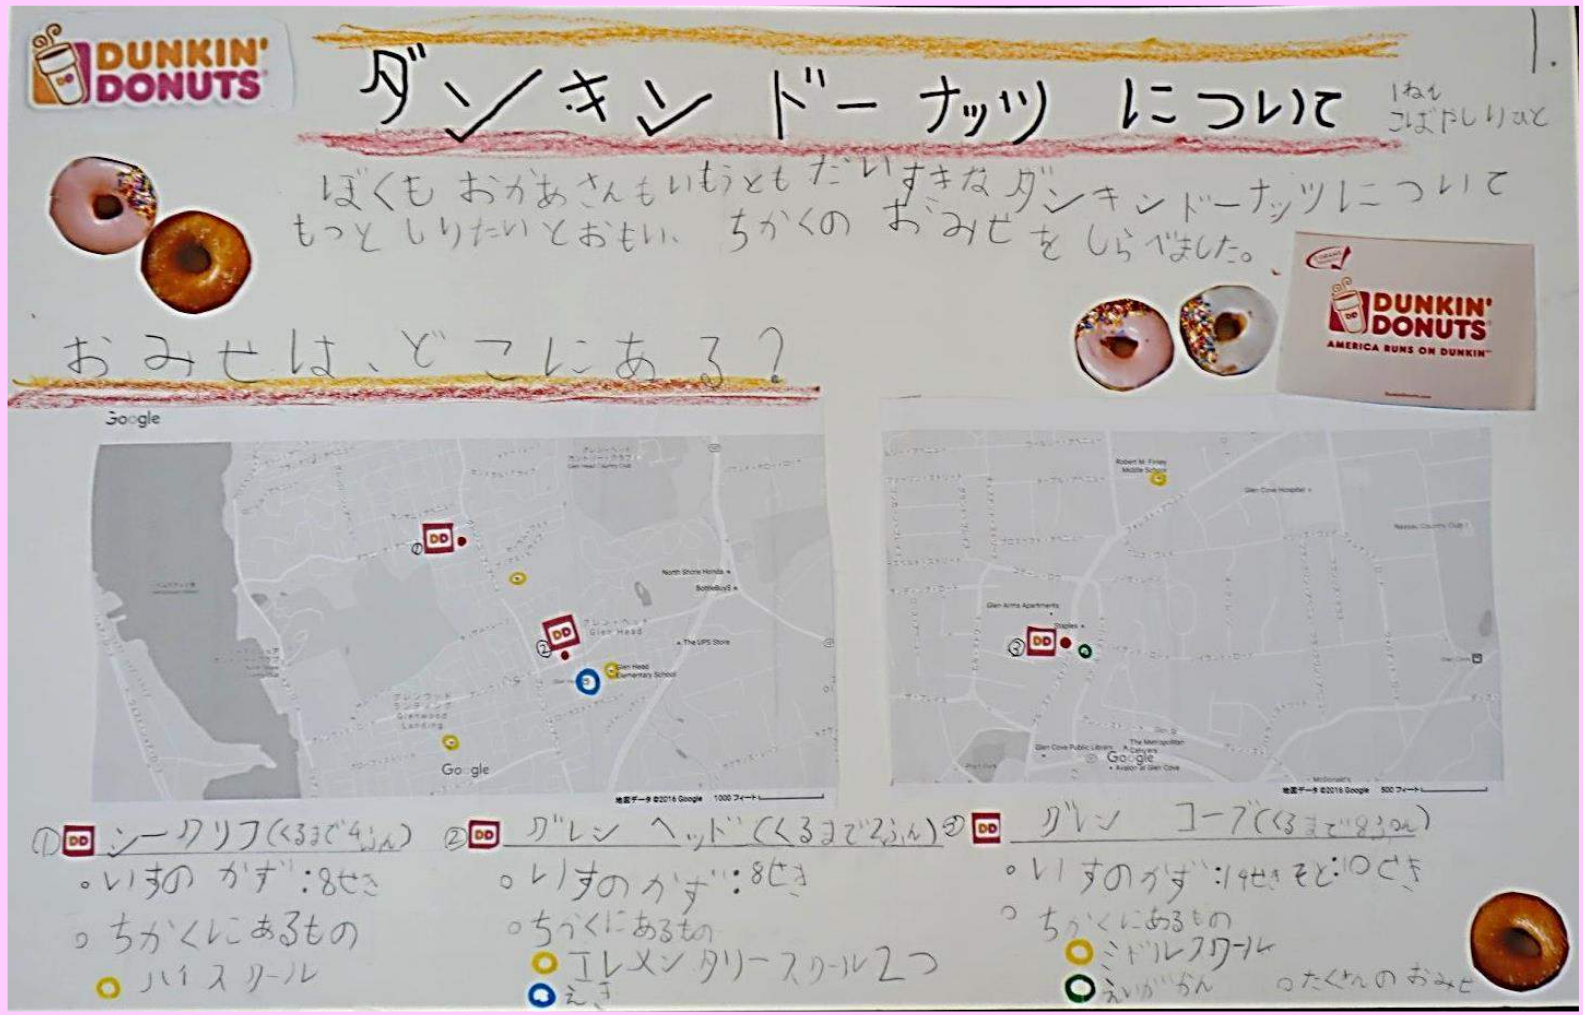 DUNKIN'
DONUTS
1.
ダンキンドーナッツについて
1ねん
こばやしりひと
ぼくもおかあさんもいもうともだいすきなダンキンドーナッツについて
もっとしりたいとおもい、ちかくのおみせをしらべました。
DUNKIN'
DONUTS
AMERICA RUNS ON DUNKIN'
おみせは、どこにある?
Google
DD
①
North Shore Honda
BottleBoys
DD
②
グレン・ヘッド
Glen Head
The UPS Store
Glen Head
Elementary School
グレンウッド
ランディング
Glenwood
Landing
Google
地図データ ©2016 Google 1000 フィート
Robert M. Finley
Middle School
Glen Cove Hospital
Nassau Country Club
Glen Arms Apartments
Staples
③
DD
Glen Cove Public Library
The Metropolitan
Google
Avalon at Glen Cove
McDonald's
地図データ ©2016 Google 500 フィート
① DD シークリフ(くるまで4ふん)
いすのかず:8せき
ちかくにあるもの
ハイスクール
② DD グレンヘッド(くるまで2ふん)
いすのかず:8せき
ちかくにあるもの
エレメンタリースクール2つ
えき
③ DD グレンコーブ(くるまで8ふん)
いすのかず:14せきそと:10せき
ちかくにあるもの
ミドルスクール
えいがかん
たくさんのおみせ